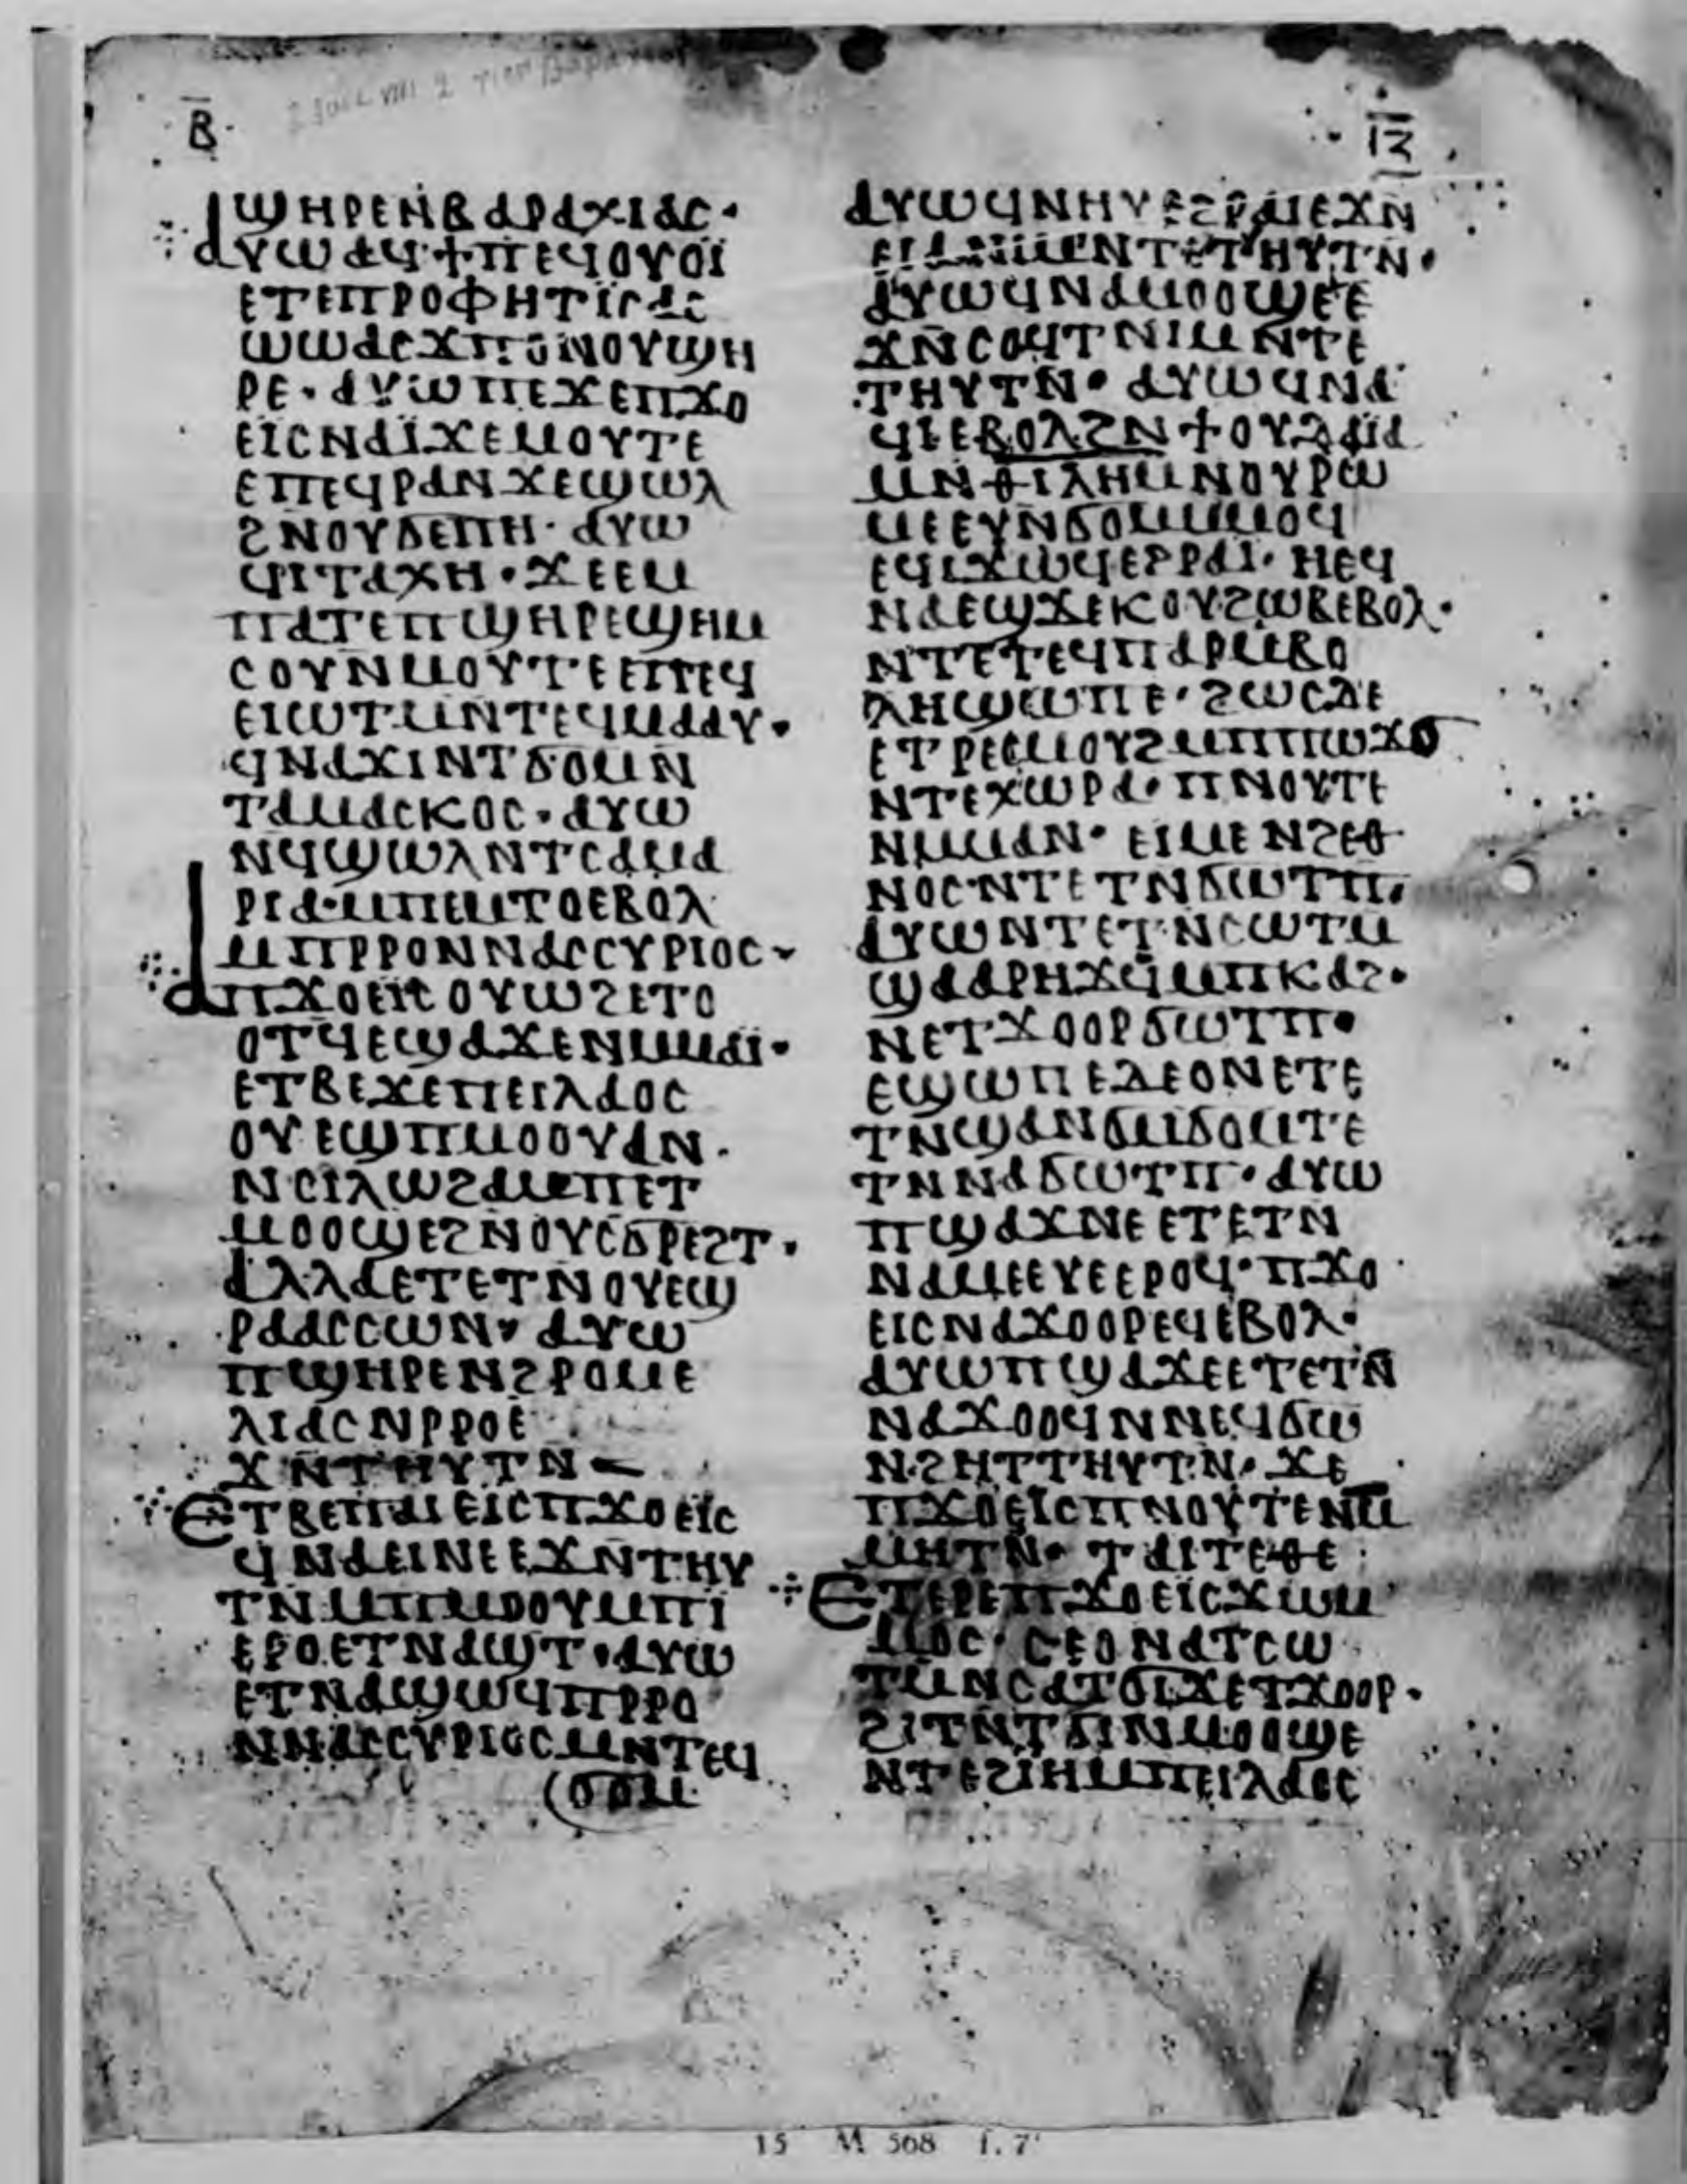 ⲃ
ⲓⲅ
ϣⲏⲣⲉⲛⲃⲁⲣⲁⲭⲓⲁⲥ·
ⲁⲩⲱⲁϥϯⲡⲉϥⲟⲩⲟⲓ
ⲉⲧⲉⲡⲣⲟⲫⲏⲧⲓⲥⲁⲥ
ⲱⲱⲁⲥϫⲡⲟⲛⲟⲩϣⲏ
ⲣⲉ· ⲁⲩⲱⲡⲉϫⲉⲡϫⲟ
ⲉⲓⲥⲛⲁⲓϫⲉⲙⲟⲩⲧⲉ
ⲉⲡⲉϥⲣⲁⲛϫⲉϣⲱⲗ
ϩⲛⲟⲩϭⲉⲡⲏ· ⲁⲩⲱ
ϥⲓⲧⲁⲭⲏ·ϫⲉⲉⲙ
ⲡⲁⲧⲉⲡϣⲏⲣⲉϣⲏⲙ
ⲥⲟⲩⲛⲙⲟⲩⲧⲉⲉⲡⲉϥ
ⲉⲓⲱⲧⲙⲛⲧⲉϥⲙⲁⲁⲩ·
ϥⲛⲁϫⲓⲛⲧϭⲟⲙⲛ
ⲧⲁⲙⲁⲥⲕⲟⲥ·ⲁⲩⲱ
ⲛϥϣⲱⲗⲛⲧⲥⲁⲙⲁ
ⲣⲓⲁ·ⲙⲡⲉⲙⲧⲟⲉⲃⲟⲗ
ⲙⲡⲣⲣⲟⲛⲛⲁⲥⲥⲩⲣⲓⲟⲥ
ⲁⲡϫⲟⲉⲓⲥⲟⲩⲱϩⲉⲧⲟ
ⲟⲧϥⲉϣⲁϫⲉⲛⲙⲙⲁⲓ·
ⲉⲧⲃⲉϫⲉⲡⲉⲓⲗⲁⲟⲥ
ⲟⲩⲉϣⲡⲙⲟⲟⲩⲁⲛ·
ⲛⲥⲓⲗⲱϩⲁⲙⲡⲉⲧ
ⲙⲟⲟϣⲉϩⲛⲟⲩⲥϭⲣⲉϩⲧ·
ⲁⲗⲗⲁⲉⲧⲉⲧⲛⲟⲩⲉϣ
ⲣⲁⲁⲥⲥⲱⲛ· ⲁⲩⲱ
ⲡϣⲏⲣⲉⲛϩⲣⲟⲙⲉ
ⲗⲓⲁⲥⲛⲣⲣⲟⲉ
ϫⲛⲧⲏⲩⲧⲛ
ⲉⲧⲃⲉⲡⲁⲓⲉⲓⲥⲡϫⲟⲉⲓⲥ
ϥⲛⲁⲉⲓⲛⲉⲉϫⲛⲧⲏⲩ
ⲧⲛⲙⲡⲙⲟⲟⲩⲙⲡⲓ
ⲉⲣⲟⲉⲧⲛⲁϣⲧ·ⲁⲩⲱ
ⲉⲧⲛⲁϣⲱϥⲡⲣⲣⲟ
ⲛⲛⲁⲥⲥⲩⲣⲓⲟⲥⲙⲛⲧⲉϥ
ϭⲟⲙ
ⲁⲩⲱϥⲛⲏⲩⲉϩⲣⲁⲓⲉϫⲛ
ⲉⲓⲁⲛⲓⲙⲛⲧⲉⲧⲏⲩⲧⲛ·
ⲁⲩⲱϥⲛⲁⲙⲟⲟϣⲉⲉ
ϫⲛⲥⲟⲃⲧⲛⲓⲙⲛⲧⲉ
ⲧⲏⲩⲧⲛ· ⲁⲩⲱϥⲛⲁ
ϥⲓⲉⲃⲟⲗϩⲛϯⲟⲩⲇⲁⲓⲁ
ⲙⲛⲑⲓⲗⲏⲙⲛⲟⲩⲣⲱ
ⲙⲉⲉⲩⲛϭⲟⲙⲙⲙⲟϥ
ⲉϥⲓϫⲱϥⲉϩⲣⲁⲓ· ⲏⲉϥ
ⲛⲁⲉϣϫⲉⲕⲟⲩϩⲱⲃⲉⲃⲟⲗ·
ⲛⲧⲉⲧⲉϥⲡⲁⲣⲙⲃⲟ
ⲗⲏϣⲱⲡⲉ· ϩⲱⲥⲇⲉ
ⲉⲧⲣⲉⲥⲙⲟⲩϩⲙⲡⲡⲱϫϭ
ⲛⲧⲉⲭⲱⲣⲁ· ⲡⲛⲟⲩⲧⲉ
ⲛⲙⲙⲁⲛ· ⲉⲓⲙⲉⲛϩⲉⲑ
ⲛⲟⲥⲛⲧⲉⲧⲛϭⲱⲧⲡ·
ⲁⲩⲱⲛⲧⲉⲧⲛⲥⲱⲧⲙ
ϣⲁⲁⲣⲏϫϥⲙⲡⲕⲁϩ·
ⲛⲉⲧϫⲟⲟⲣϭⲱⲧⲡ·
ⲉϣⲱⲡⲉⲇⲉⲟⲛⲉⲧⲉ
ⲧⲛϣⲁⲛϭⲙϭⲟⲙⲧⲉ
ⲧⲛⲛⲁϭⲱⲧⲡ·ⲁⲩⲱ
ⲡϣⲁϫⲛⲉⲉⲧⲉⲧⲛ
ⲛⲁⲙⲉⲉⲩⲉⲉⲣⲟϥ·ⲡϫⲟ
ⲉⲓⲥⲛⲁϫⲟⲟⲣⲉϥⲉⲃⲟⲗ·
ⲁⲩⲱⲡϣⲁϫⲉⲉⲧⲉⲧⲛ
ⲛⲁϫⲟⲟϥⲛⲛⲉϥϭⲱ
ⲛϩⲏⲧⲧⲏⲩⲧⲛ· ϫⲉ
ⲡϫⲟⲉⲓⲥⲡⲛⲟⲩⲧⲉⲛⲙ
ⲙⲏⲧⲛ· ⲧⲁⲓⲧⲉⲑⲉ
ⲉⲧⲉⲣⲉⲡϫⲟⲉⲓⲥϫⲱⲙ
ⲙⲟⲥ· ⲥⲉⲟⲛⲁⲧⲥⲱ
ⲧⲙⲛⲥⲁⲧϭⲓϫⲉⲧϫⲟⲟⲣ·
ϩⲓⲧⲛⲧϭⲓⲛⲙⲟⲟϣⲉ
ⲛⲧⲉϩⲓⲏⲙⲡⲉⲓⲗⲁⲟⲥ
15 M 568 f. 7ᵛ